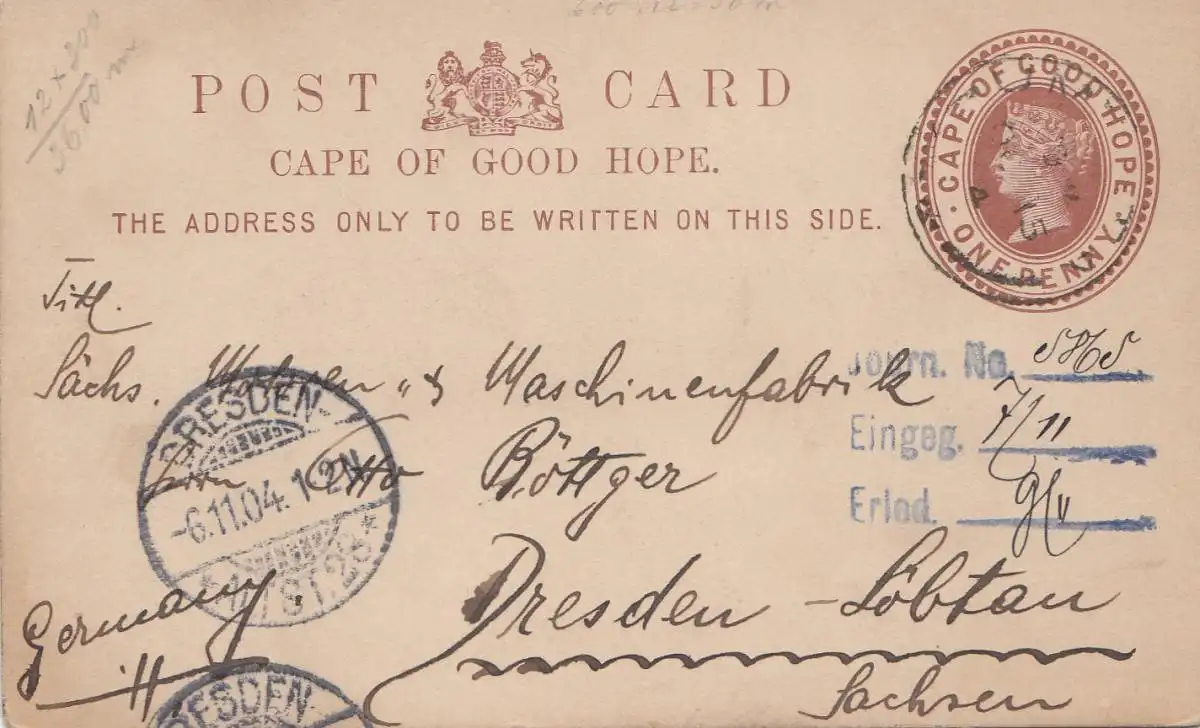 12 x 300
36,00 m
POST CARD
CAPE OF GOOD HOPE.
THE ADDRESS ONLY TO BE WRITTEN ON THIS SIDE.
CAPE OF GOOD HOPE
ONE PENNY
15
4
Titl.
Sächs. & Maschinenfabrik
Otto Böttger
Dresden - Löbtau
Sachsen
Germany
Journ. No.
Eingeg. 7/11
Erled.
DRESDEN-
-6.11.04. 1-2N.
DRESDEN-